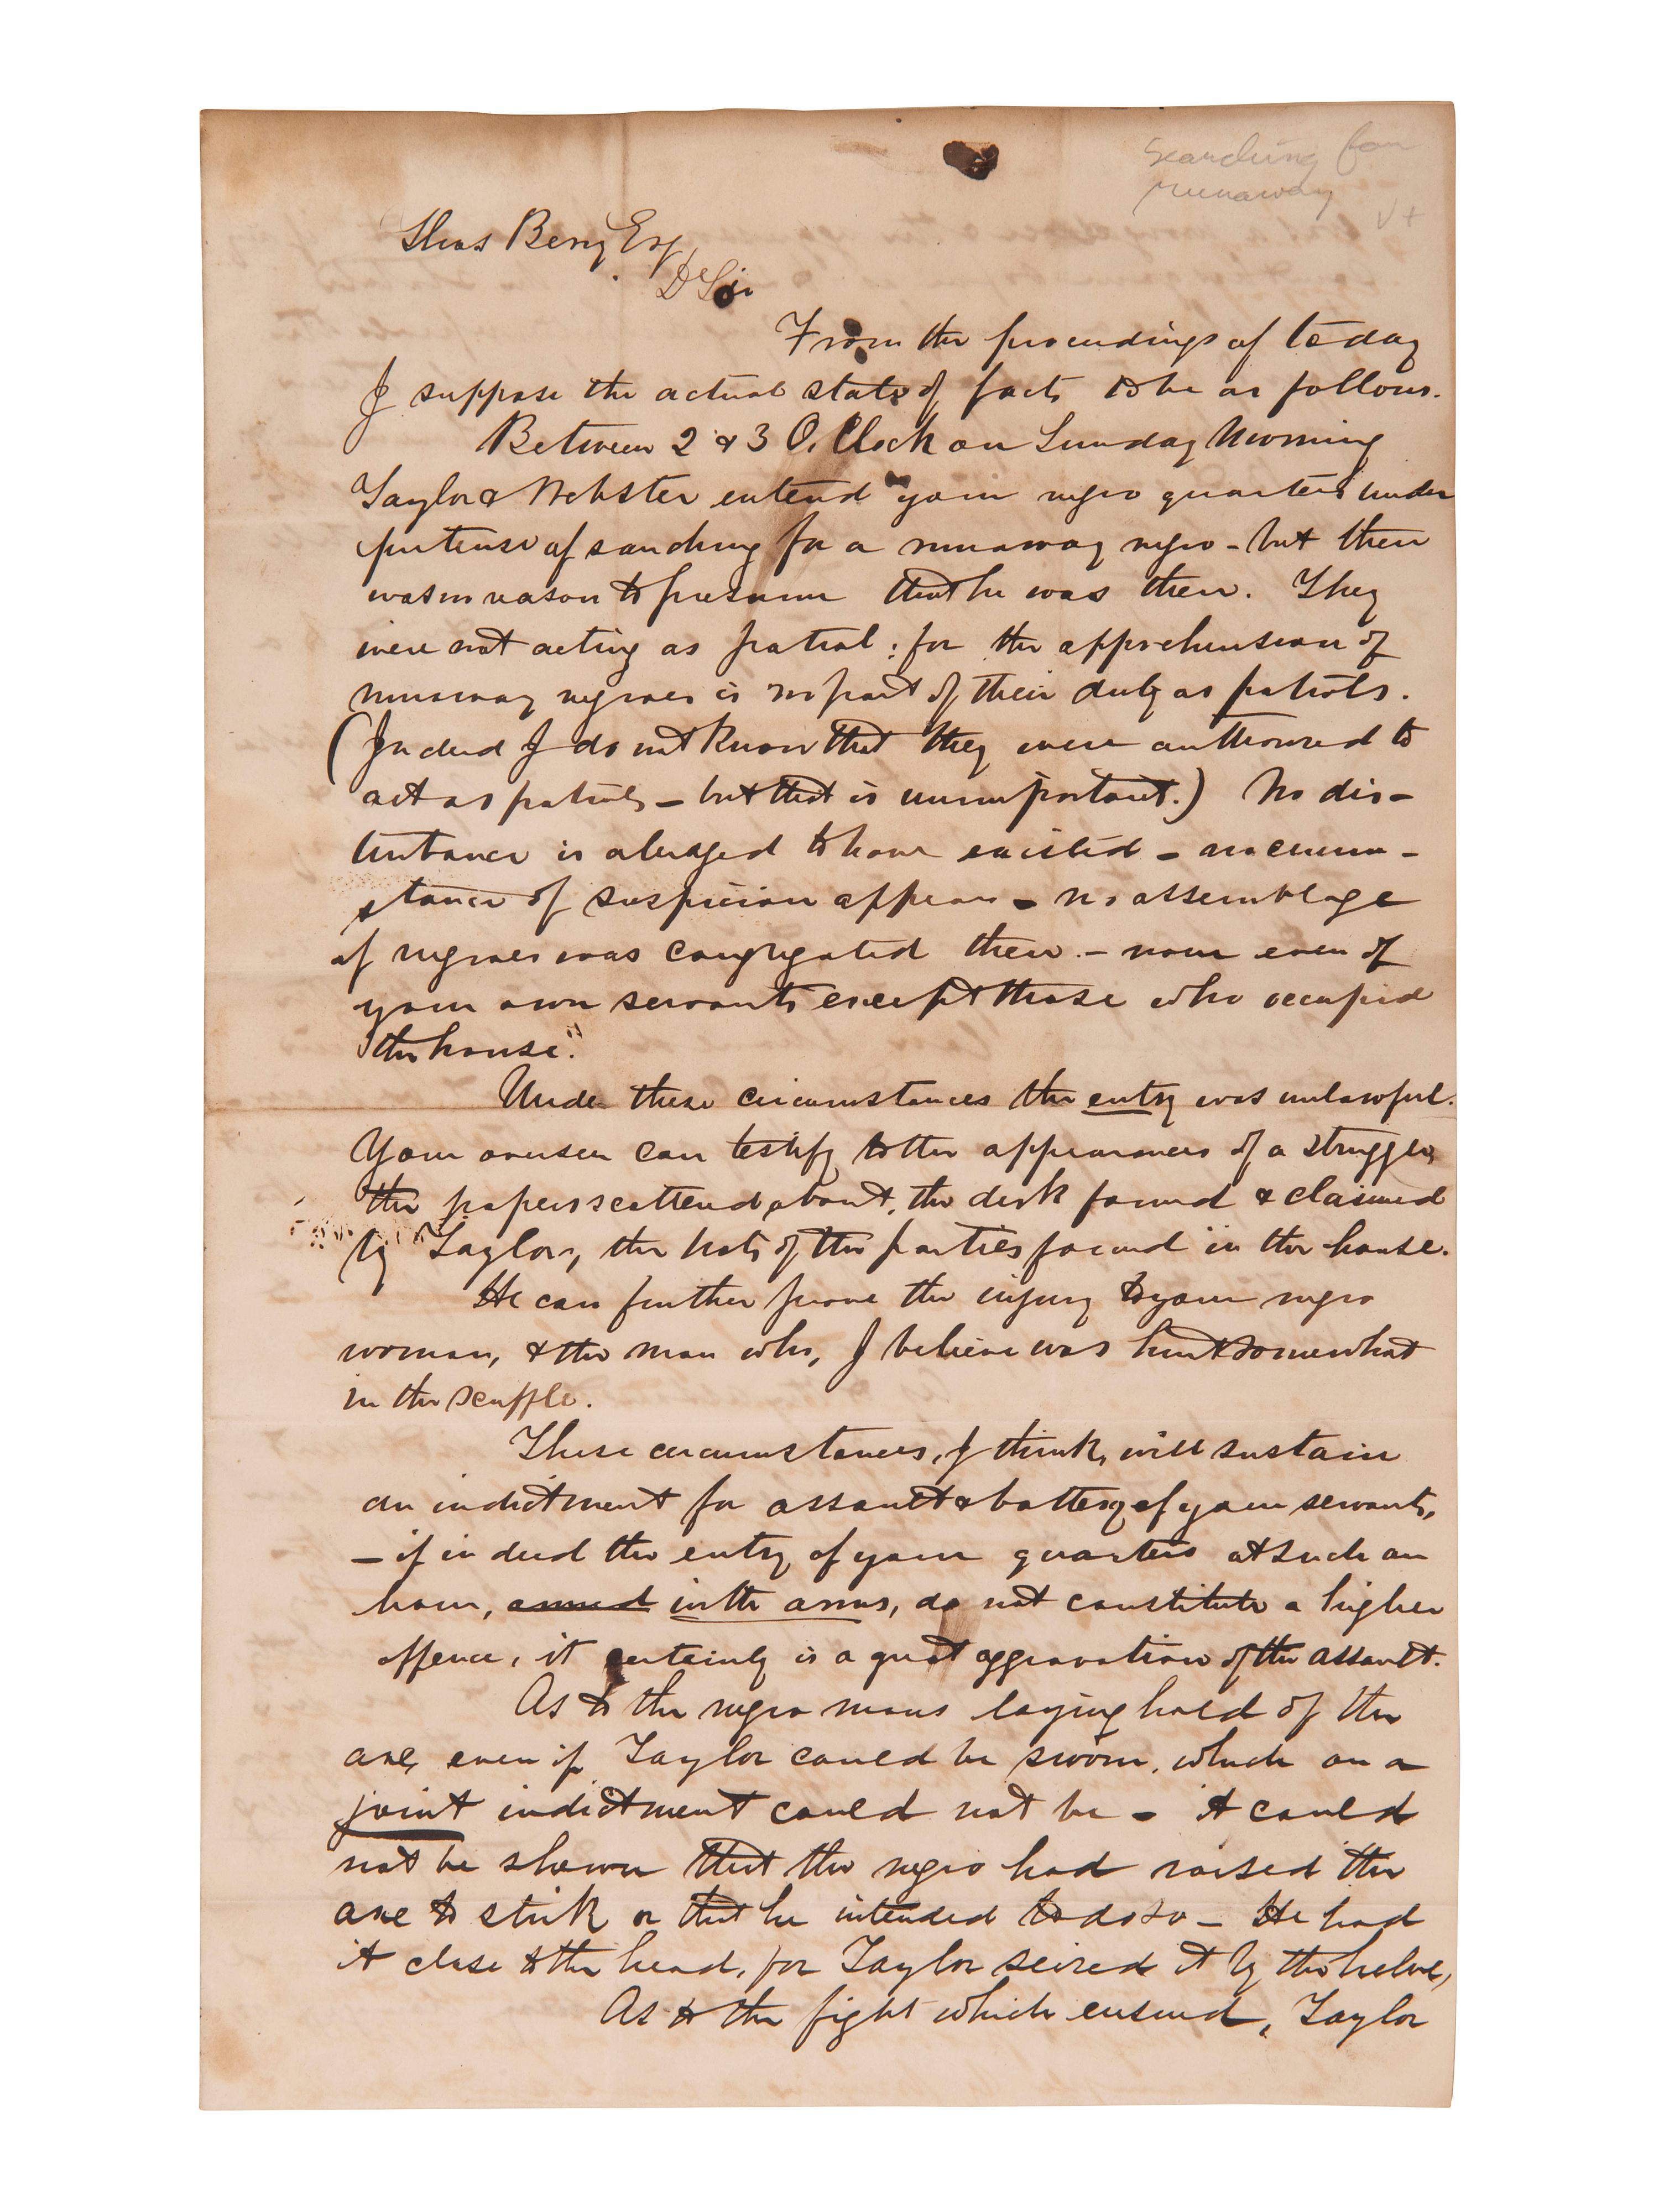 Searching for
runaway
Thos Berry Esq
Dr Sir
From the proceedings of to day
I suppose the actual state of facts to be as follows.
Between 2 & 3 O, Clock on Sunday Morning
Taylor & Webster entered your negro quarters under
pretense of searching for a runaway negro - but there
was no reason to presume that he was there. They
were not acting as patrol: for the apprehension of
runaway negroes is no part of their duty as patrols.
(Indeed I do not know that they were authorized to
act as patrols - but that is unimportant.) No dis-
turbance is alledged to have existed - no circum-
stance of suspicion appears - no assemblage
of negroes was congregated there. - none even of
your own servants except those who occupied
the house.
Under these circumstances the entry was unlawful.
Your overseer can testify to the appearances of a struggle,
the papers scattered about, the dirk found & claimed
by Taylor, the hats of the parties found in the house.
He can further prove the injury to your negro
woman, & the man who, I believe was hurt somewhat
in the scuffle.
These circumstances, I think, will sustain
an indictment for assault & battery of your servants,
- if indeed the entry of your quarters at such an
hour, armed with arms, do not constitute a higher
offence, it certainly is a great aggravation of the assault.
As to the negro mans laying hold of the
axe, even if Taylor could be sworn, which on a
joint indictment could not be - it could
not be shown that the negro had raised the
axe to strik or that he intended to do so - He had
it close to the head, for Taylor seized it by the helve,
As to the fight which ensued, Taylor